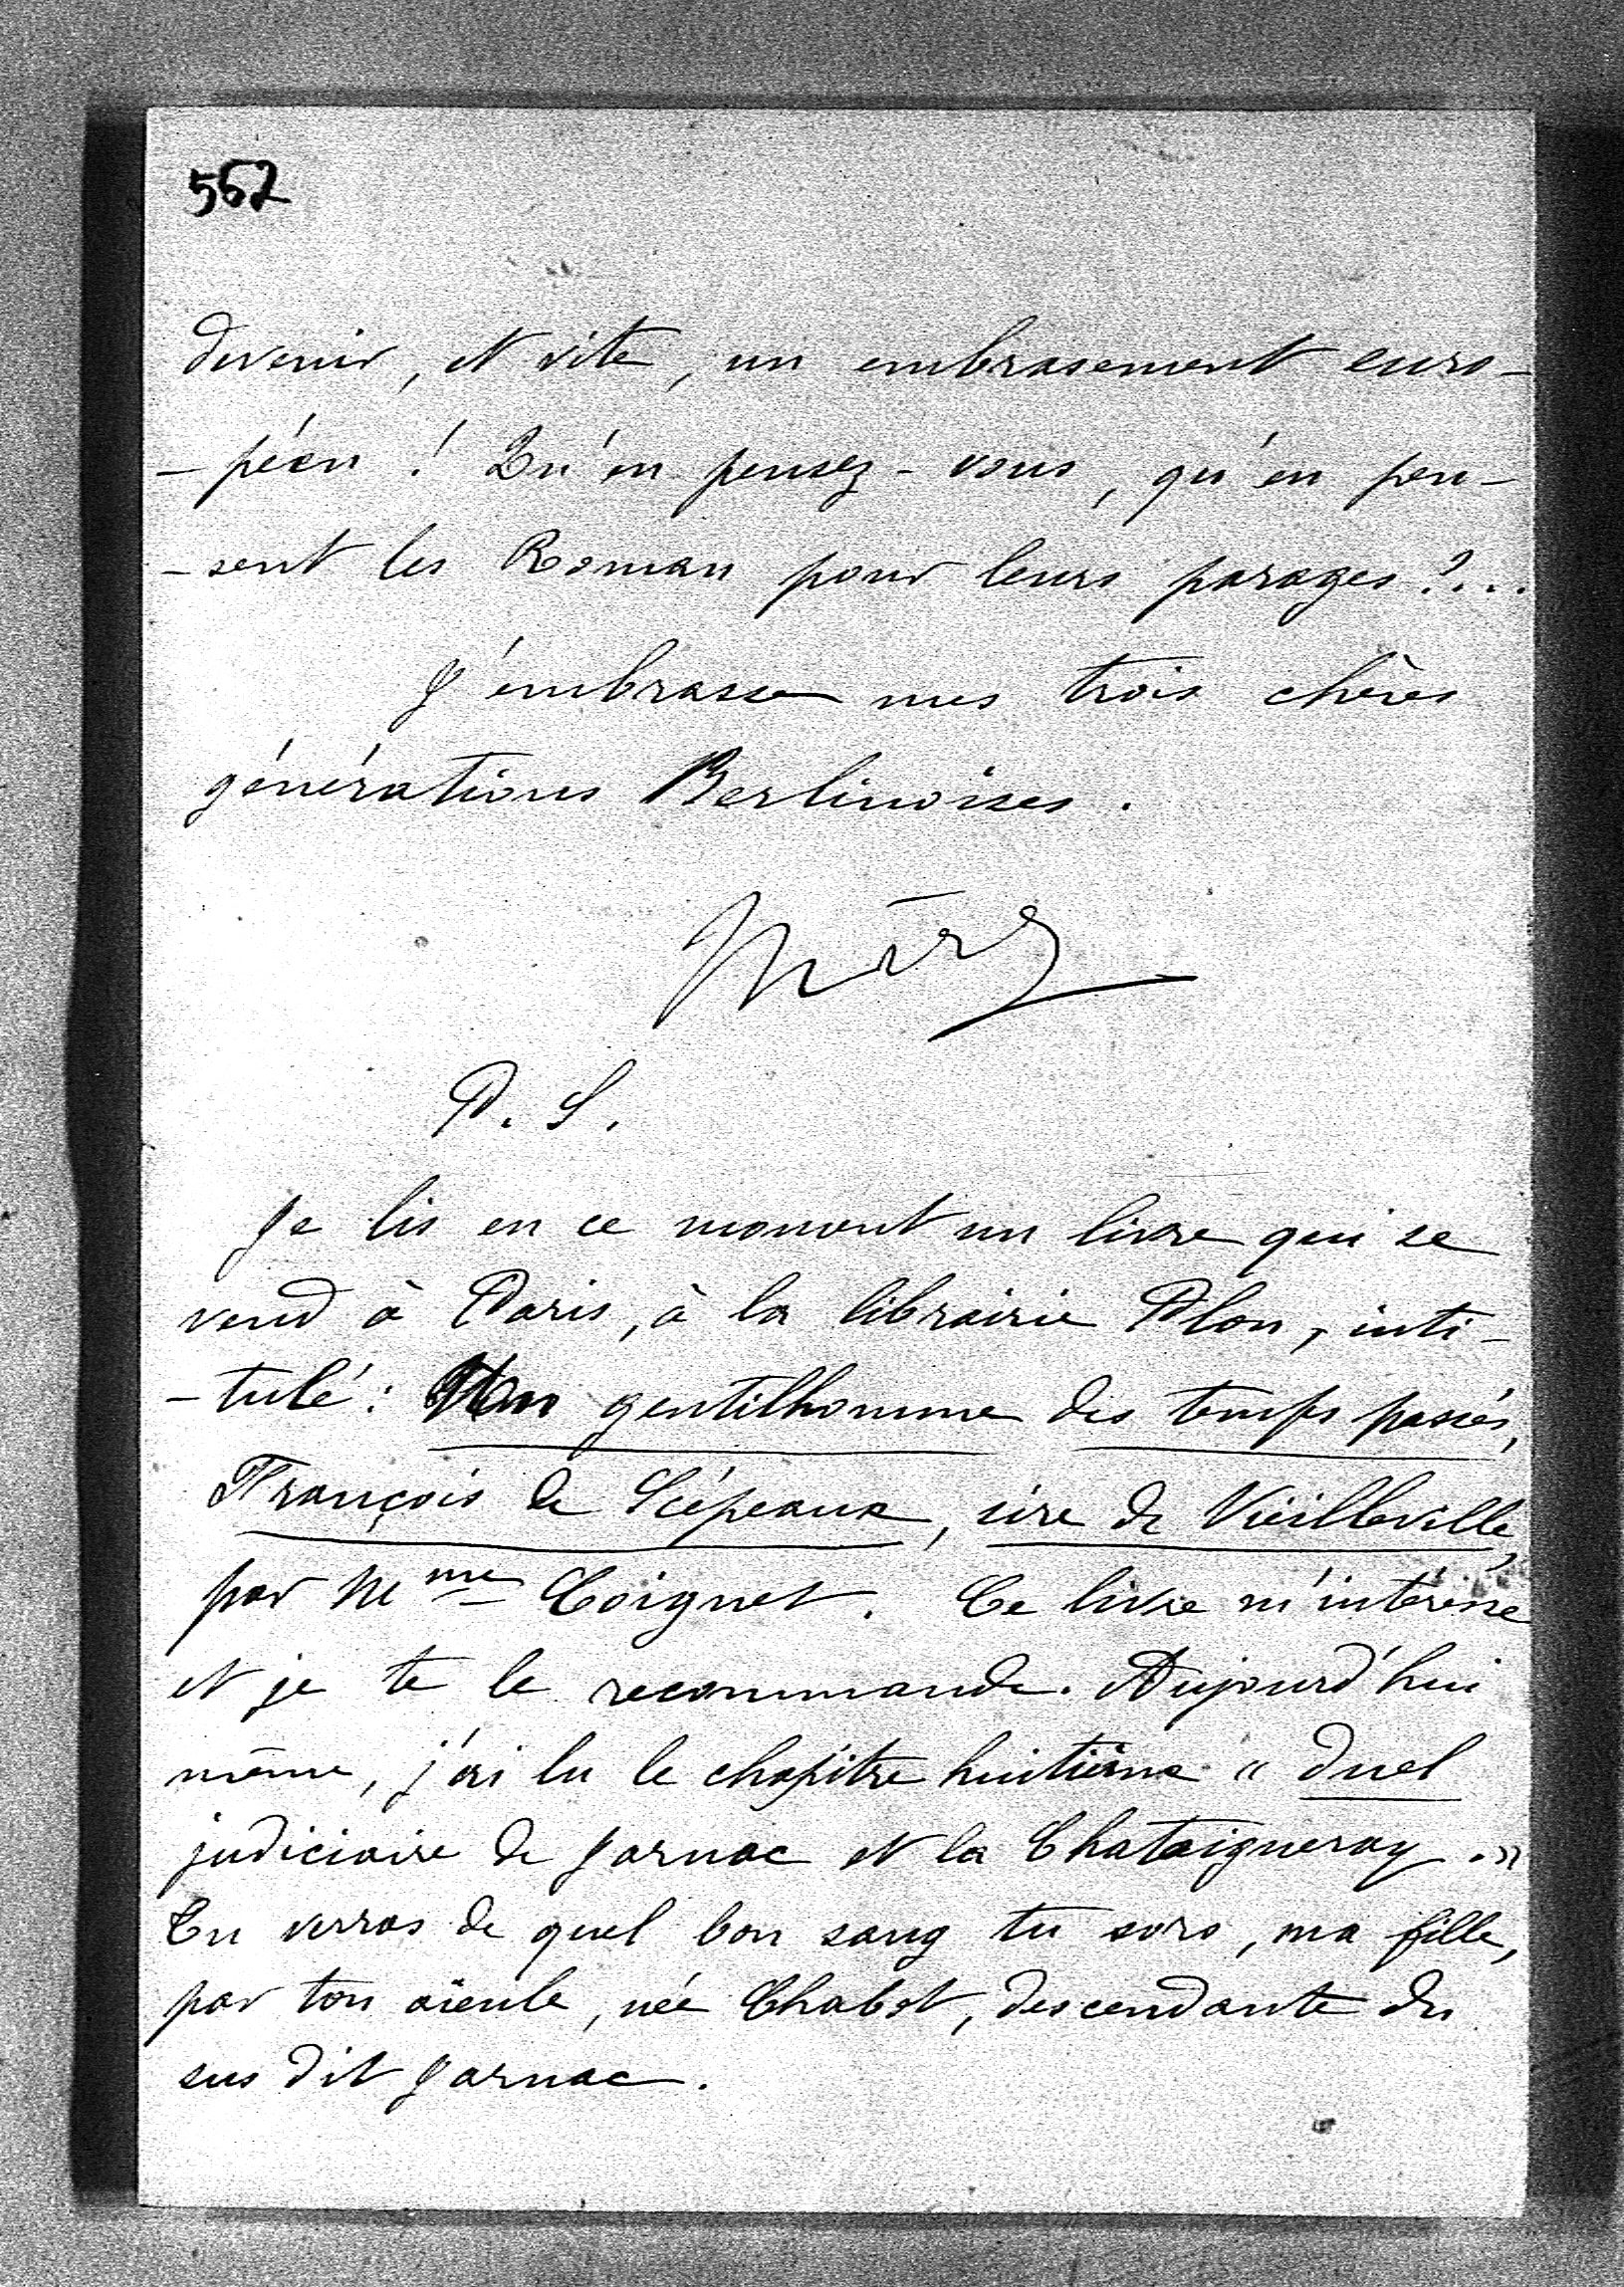 562
devenir, et vite, un embrasement euro-
-péen ! Qu'en pensez-vous, qu'en pen-
-sent les Roman pour leurs parages ?...
J'embrasse mes trois chères
générations Berlinoises.
P. S.
Je lis en ce moment un livre qui se
vend à Paris, à la librairie Plon, inti-
-tulé : Un gentilhomme des temps passés,
François de Scépeaux, sire de Vieilleville,
par Mme Coignet. Ce livre m'intéresse
et je te le recommande. Aujourd'hui
même, j'ai lu le chapitre huitième « Duel
judiciaire de Jarnac et la Chataigneray. »
Tu verras de quel bon sang tu sors, ma fille,
par ton aïeule, née Chabot, descendante du
sus dit Jarnac.